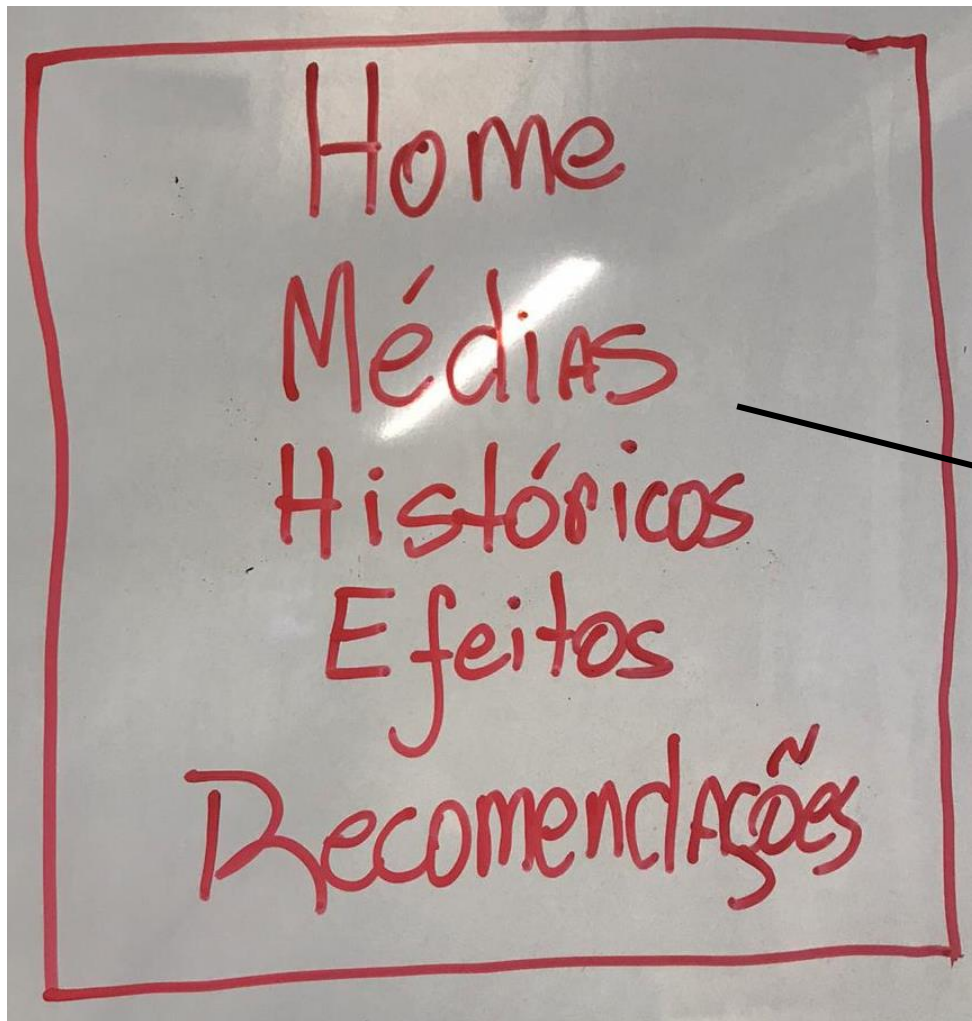 Home
Médias
Históricos
Efeitos
Recomendações